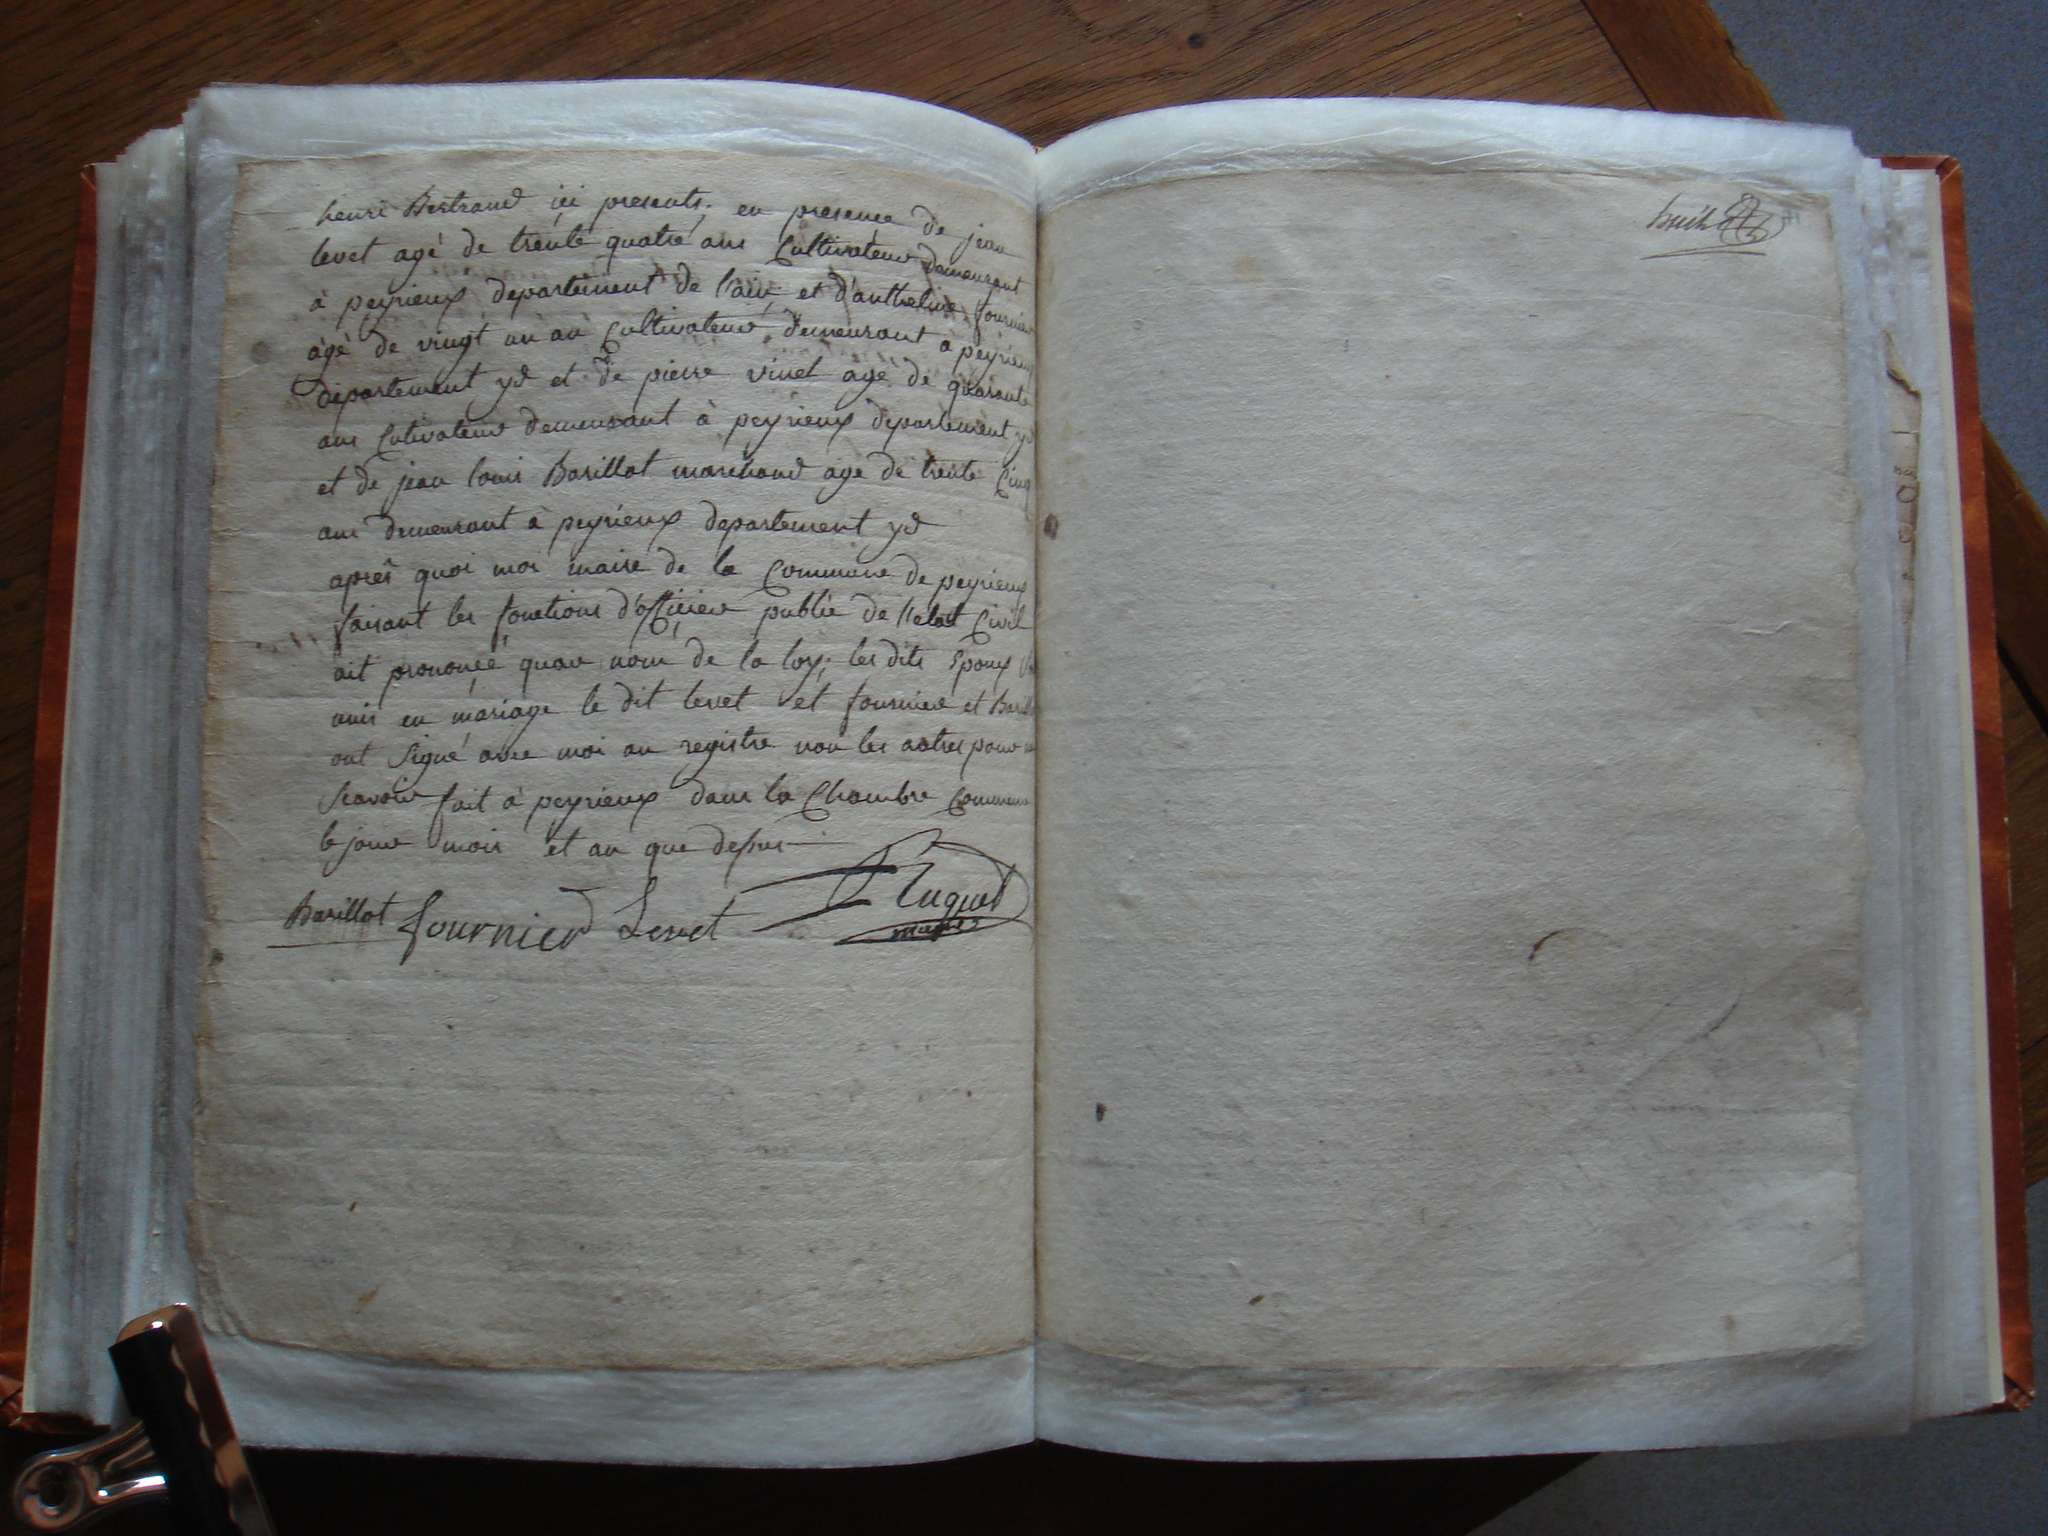 henri Bertrand ici presents; en presence de jean
levet agé de trente quatre ans Cultivateur demeurant
à peyrieux departement de l'ain; et d'anthelme fournier
âgé de vingt un an Cultivateur, demeurant a peyrieux
departement yd et de pierre vinet âgé de quarante
ans Cutivateur demeurant à peyrieux departement yd
et de jean louis Barillot marchand age de trente Cinq
ans demeurant à peyrieux departement yd
après quoi moi maire de la Commune de peyrieux
faisant les fonctions d'officier public de l'etat Civil
ait prononcé quau nom de la loy; les dits Epoux
unis en mariage le dit levet et fournier et Barill
ont signé avec moi au registre non les autres pour
scavoir fait à peyrieux dans la Chambre Commune
le jour mois et an que dessus
Barillot fournier Levet Huguet
maire
huit